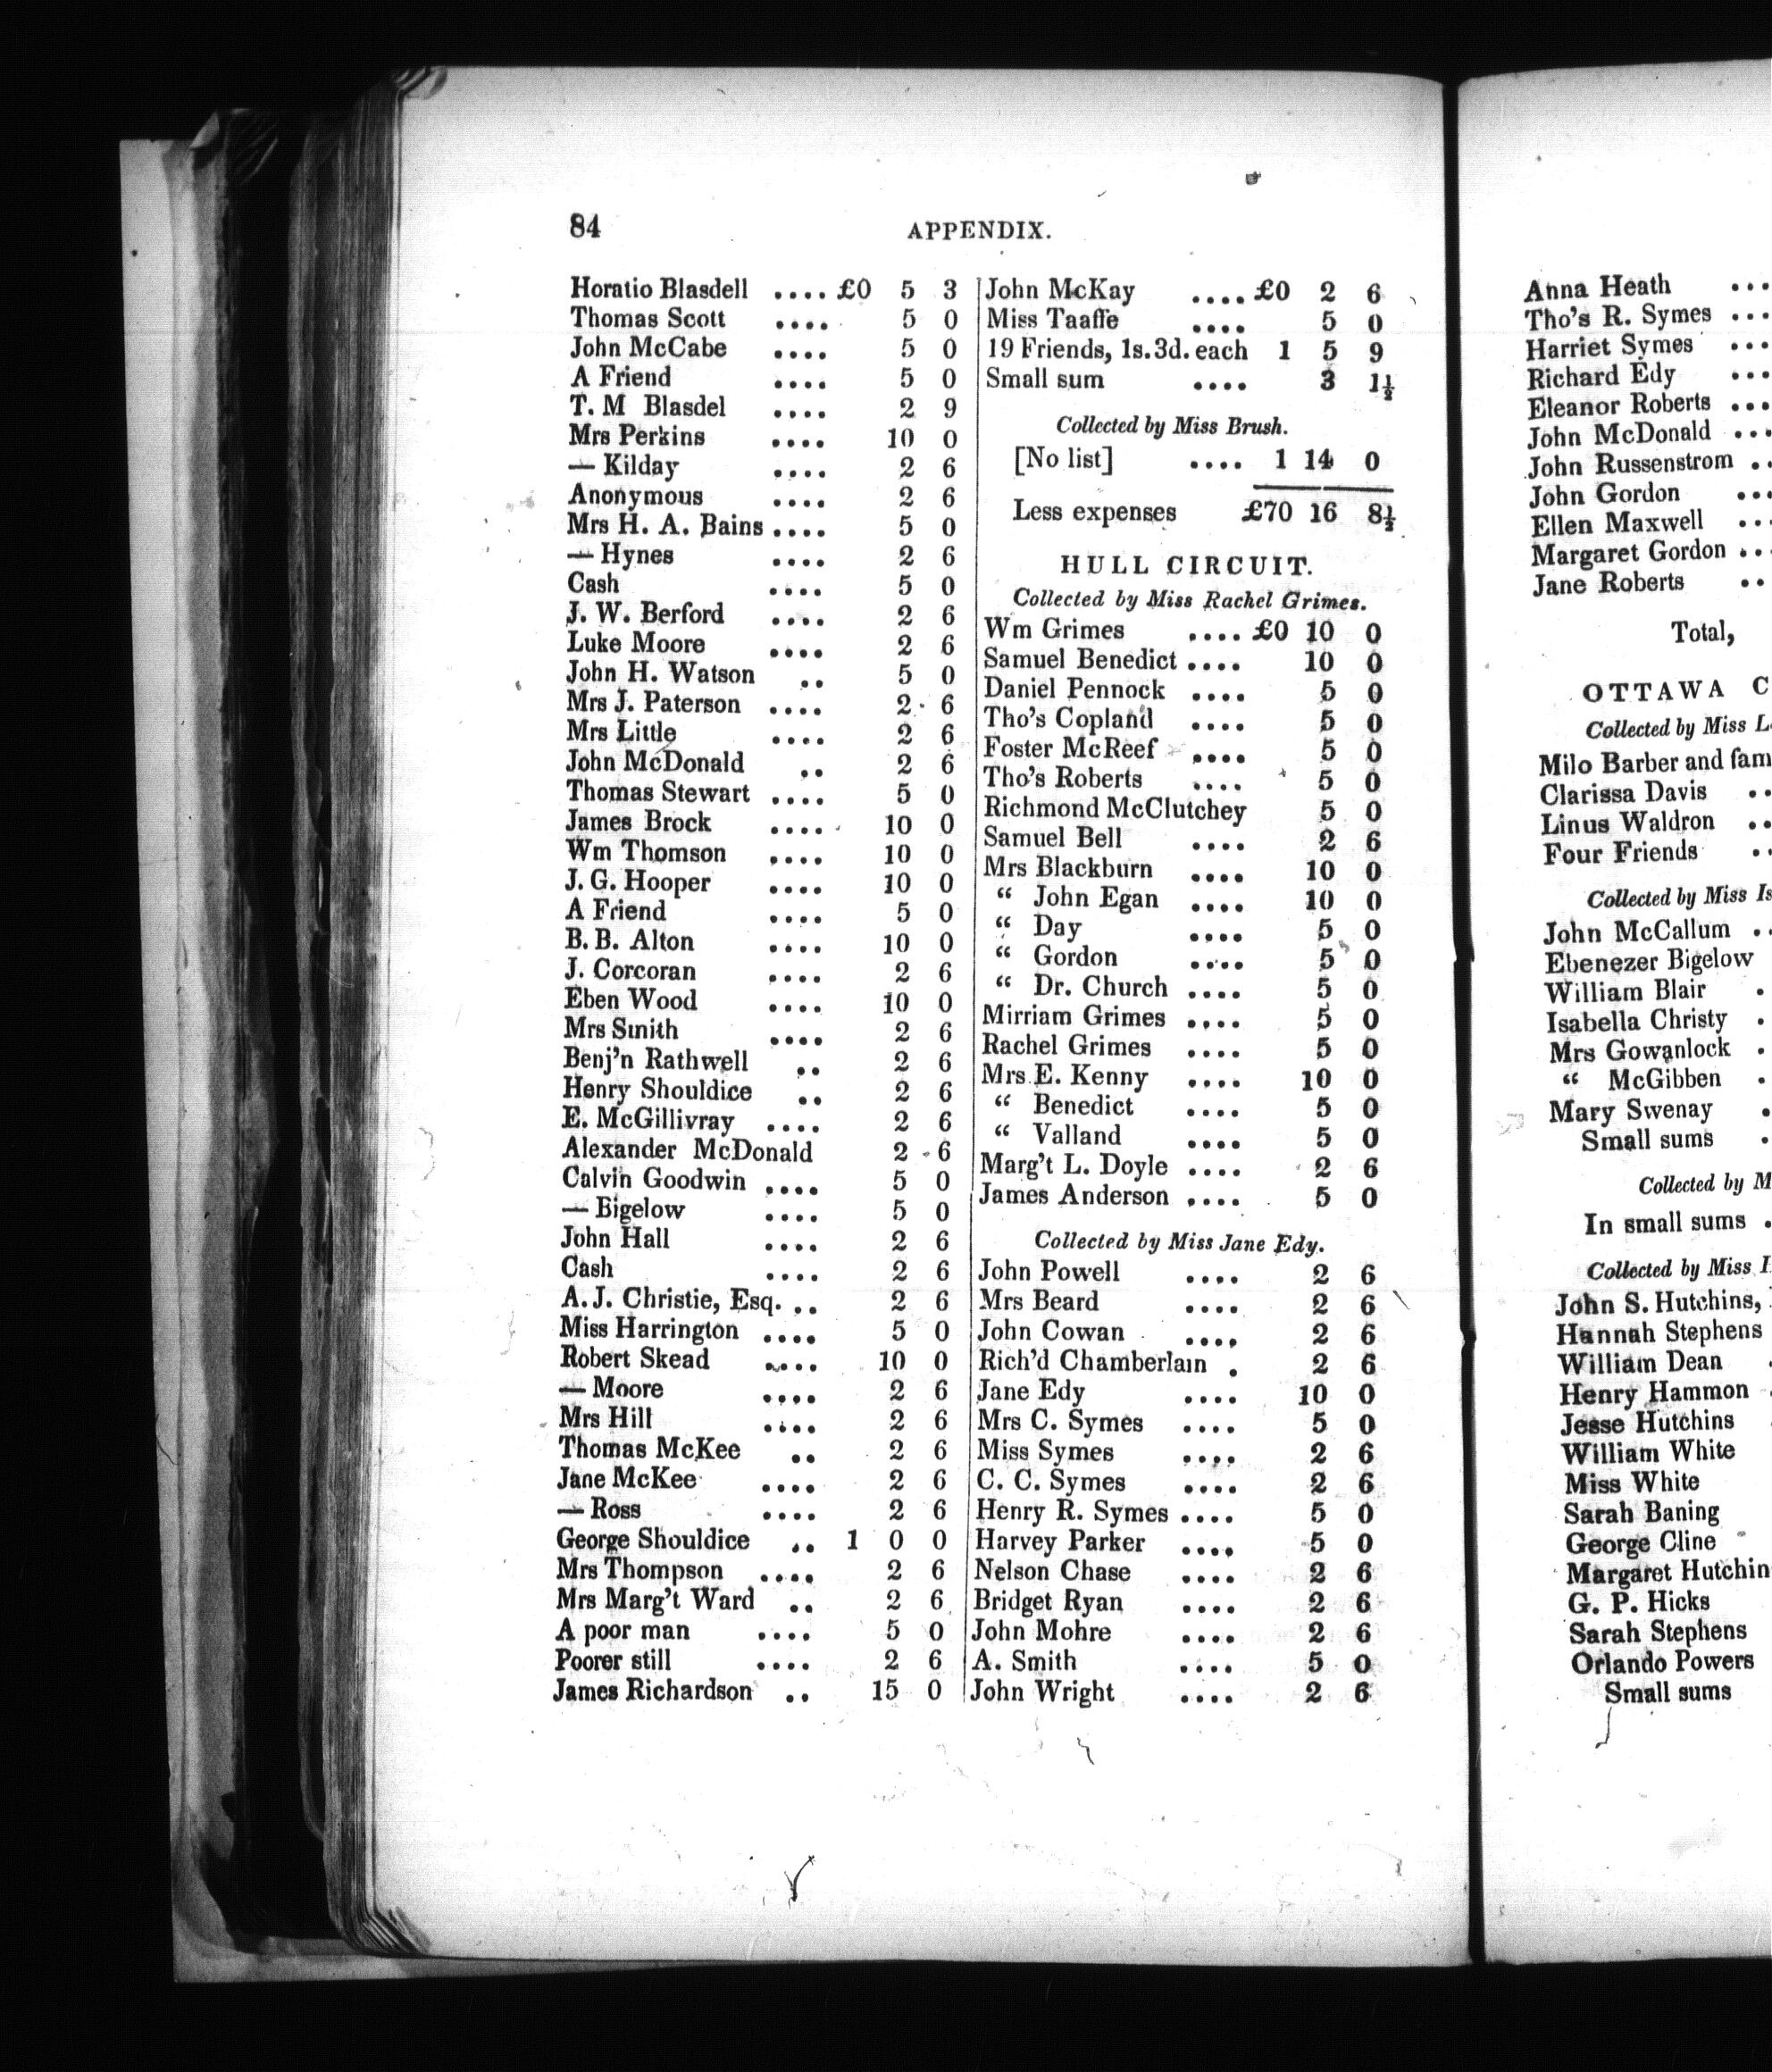 84
APPENDIX.
Horatio Blasdell .... £0 5 3
Thomas Scott .... 5 0
John McCabe .... 5 0
A Friend .... 5 0
T. M Blasdel .... 2 9
Mrs Perkins .... 10 0
— Kilday .... 2 6
Anonymous .... 2 6
Mrs H. A. Bains .... 5 0
— Hynes .... 2 6
Cash .... 5 0
J. W. Berford .... 2 6
Luke Moore .... 2 6
John H. Watson .. 5 0
Mrs J. Paterson .... 2 6
Mrs Little .... 2 6
John McDonald .. 2 6
Thomas Stewart .... 5 0
James Brock .... 10 0
Wm Thomson .... 10 0
J. G. Hooper .... 10 0
A Friend .... 5 0
B. B. Alton .... 10 0
J. Corcoran .... 2 6
Eben Wood .... 10 0
Mrs Smith .... 2 6
Benj'n Rathwell .. 2 6
Henry Shouldice .. 2 6
E. McGillivray .... 2 6
Alexander McDonald 2 6
Calvin Goodwin .... 5 0
— Bigelow .... 5 0
John Hall .... 2 6
Cash .... 2 6
A. J. Christie, Esq. .. 2 6
Miss Harrington .... 5 0
Robert Skead .... 10 0
— Moore .... 2 6
Mrs Hill .... 2 6
Thomas McKee .. 2 6
Jane McKee .... 2 6
— Ross .... 2 6
George Shouldice .. 1 0 0
Mrs Thompson .... 2 6
Mrs Marg't Ward .. 2 6
A poor man .... 5 0
Poorer still .... 2 6
James Richardson .. 15 0
John McKay .... £0 2 6
Miss Taaffe .... 5 0
19 Friends, 1s. 3d. each 1 5 9
Small sum .... 3 1½
Collected by Miss Brush.
[No list] .... 1 14 0
Less expenses £70 16 8½
HULL CIRCUIT.
Collected by Miss Rachel Grimes.
Wm Grimes .... £0 10 0
Samuel Benedict .... 10 0
Daniel Pennock .... 5 0
Tho's Copland .... 5 0
Foster McReef .... 5 0
Tho's Roberts .... 5 0
Richmond McClutchey 5 0
Samuel Bell .... 2 6
Mrs Blackburn .... 10 0
“ John Egan .... 10 0
“ Day .... 5 0
“ Gordon .... 5 0
“ Dr. Church .... 5 0
Mirriam Grimes .... 5 0
Rachel Grimes .... 5 0
Mrs E. Kenny .... 10 0
“ Benedict .... 5 0
“ Valland .... 5 0
Marg't L. Doyle .... 2 6
James Anderson .... 5 0
Collected by Miss Jane Edy.
John Powell .... 2 6
Mrs Beard .... 2 6
John Cowan .... 2 6
Rich'd Chamberlain . 2 6
Jane Edy .... 10 0
Mrs C. Symes .... 5 0
Miss Symes .... 2 6
C. C. Symes .... 2 6
Henry R. Symes .... 5 0
Harvey Parker .... 5 0
Nelson Chase .... 2 6
Bridget Ryan .... 2 6
John Mohre .... 2 6
A. Smith .... 5 0
John Wright .... 2 6
Anna Heath ...
Tho's R. Symes ...
Harriet Symes ...
Richard Edy ...
Eleanor Roberts ...
John McDonald ...
John Russenstrom ..
John Gordon ...
Ellen Maxwell ...
Margaret Gordon ...
Jane Roberts ..
Total,
OTTAWA C
Collected by Miss L
Milo Barber and fam
Clarissa Davis ..
Linus Waldron ..
Four Friends ..
Collected by Miss Is
John McCallum ..
Ebenezer Bigelow
William Blair .
Isabella Christy .
Mrs Gowanlock .
“ McGibben .
Mary Swenay .
Small sums .
Collected by M
In small sums .
Collected by Miss
John S. Hutchins,
Hannah Stephens
William Dean .
Henry Hammon .
Jesse Hutchins
William White
Miss White
Sarah Baning
George Cline
Margaret Hutchin
G. P. Hicks
Sarah Stephens
Orlando Powers
Small sums